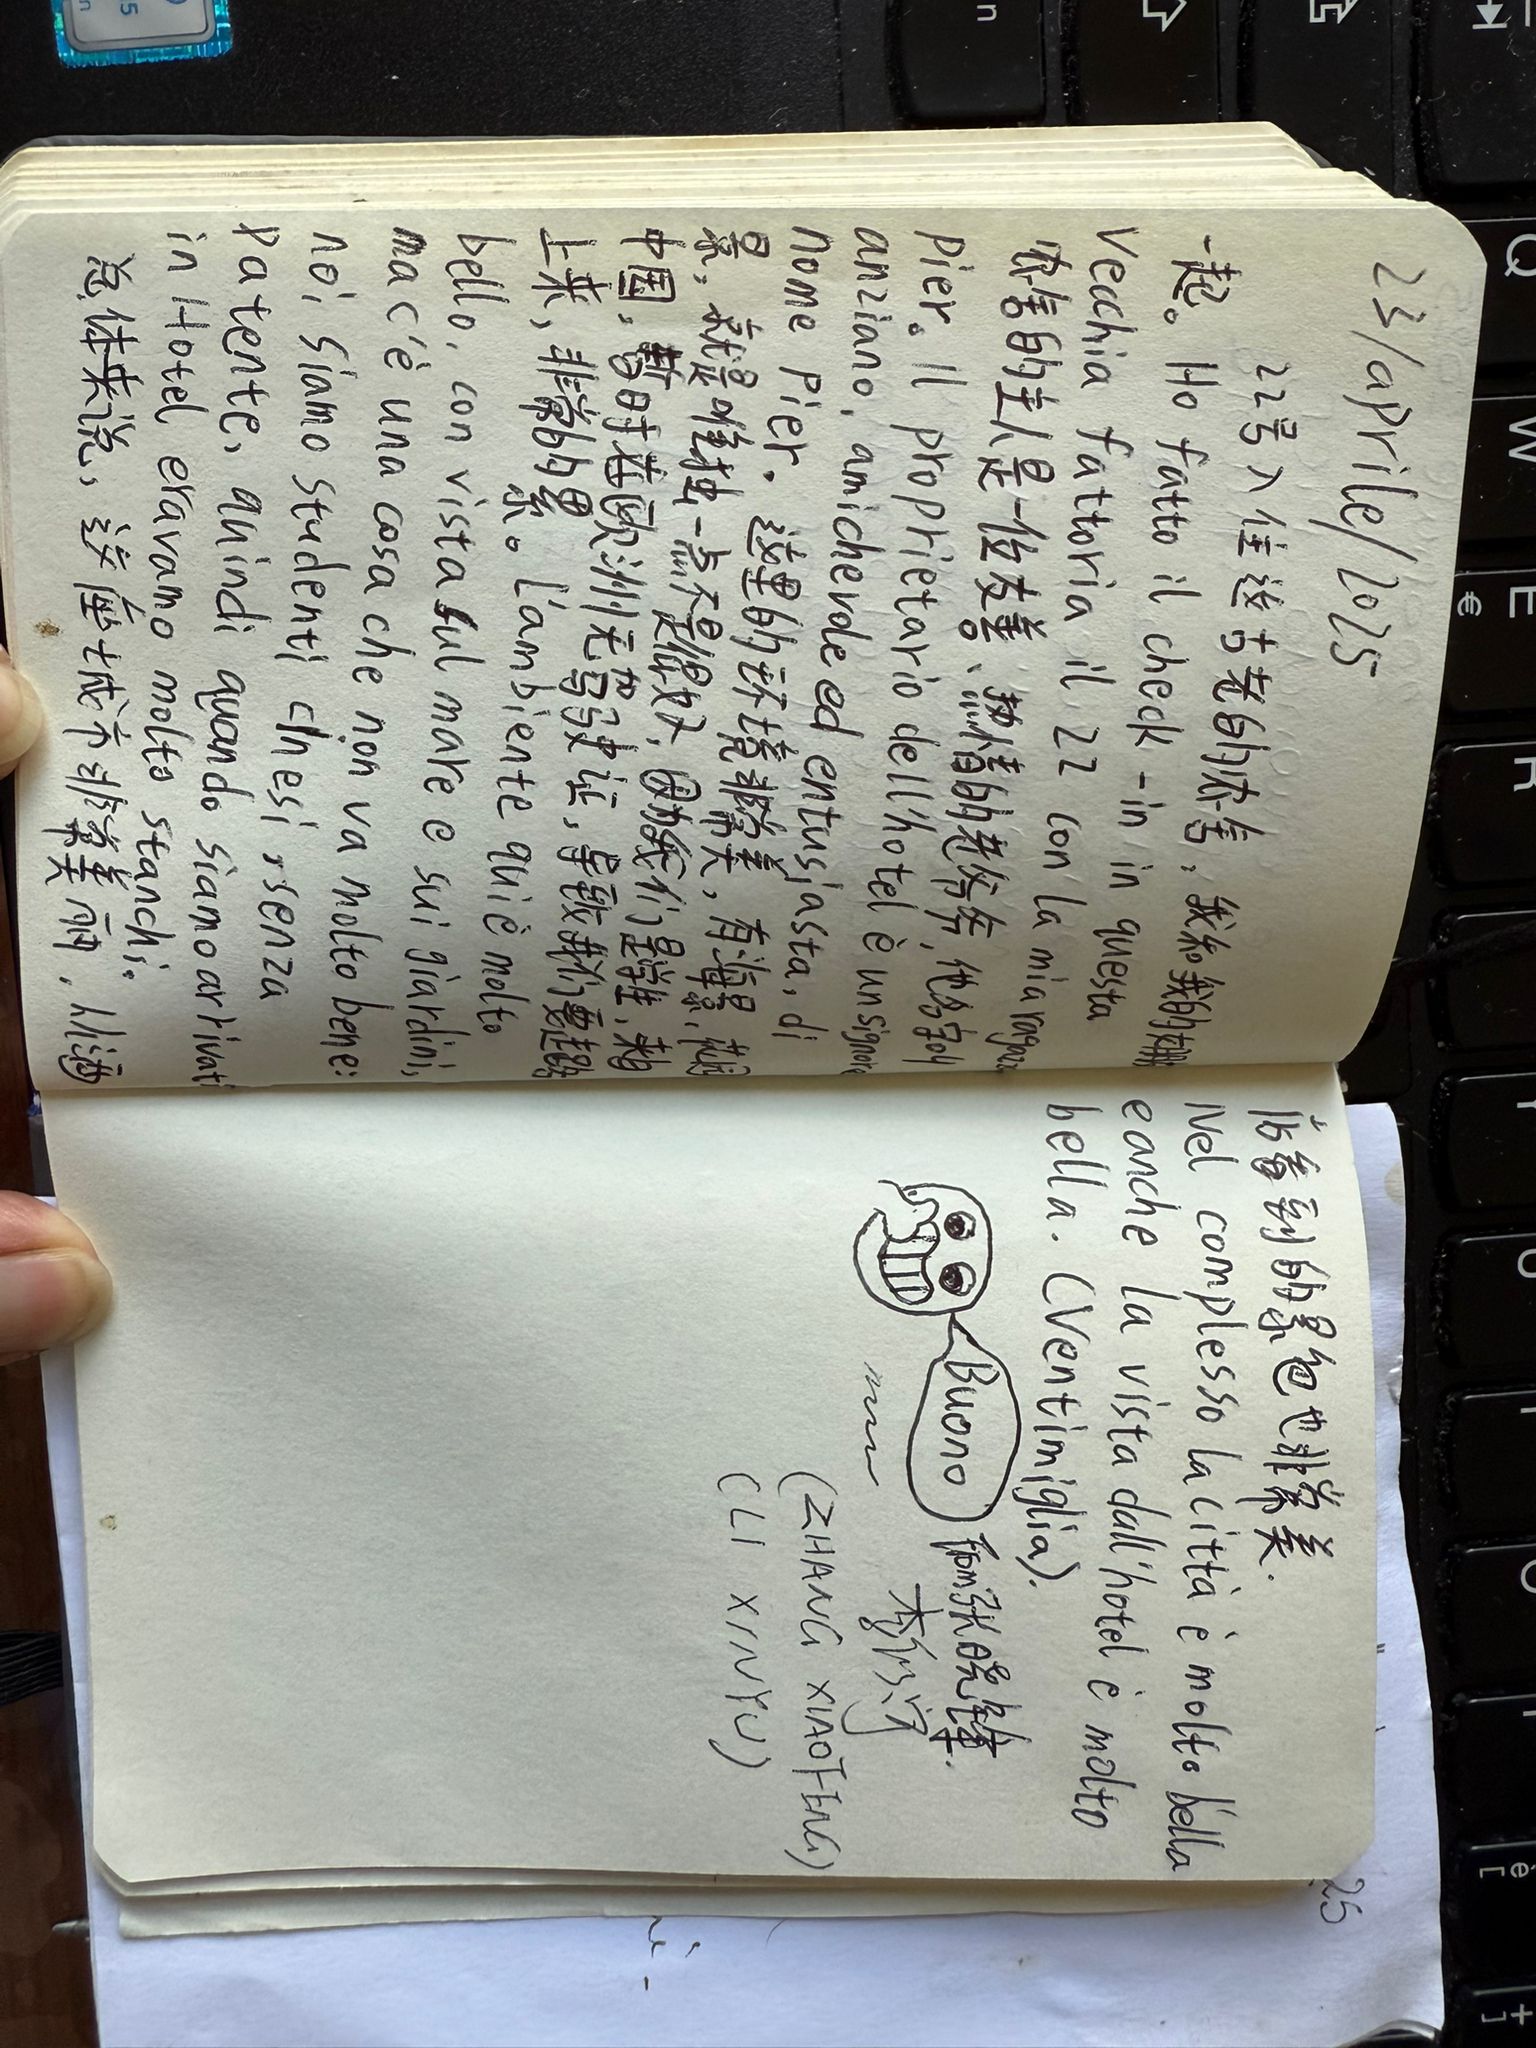 23/aprile/2025
22号入住这古老的农舍，我和我的女朋友
一起。Ho fatto il check-in in questa
vecchia fattoria il 22 con la mia ragazza
农舍的主人是一位友善、热情的老爷爷，他名字叫
Pier。Il proprietario dell'hotel è un signore
anziano, amichevole ed entusiasta, di
nome Pier. 这里的环境非常美，有海景，花园
景，就是唯独一点不是很好，因为我们是学生，来自
中国，暂时在欧洲无驾驶证，导致我们要走路
上来，非常的累。L'ambiente qui è molto
bello, con vista sul mare e sui giardini,
ma c'è una cosa che non va molto bene:
noi, siamo studenti cinesi, senza
patente, quindi quando siamo arrivati
in Hotel eravamo molto stanchi.
总体来说，这座城市非常美丽，从酒
店看到的景色也非常美.
Nel complesso la città è molto bella
e anche la vista dall'hotel è molto
bella. (Ventimiglia).
Buono
from 张晓锋.
李
(ZHANG XIAOFENG)
(LI XINYU)
25
Q W E € R T Y U I O P